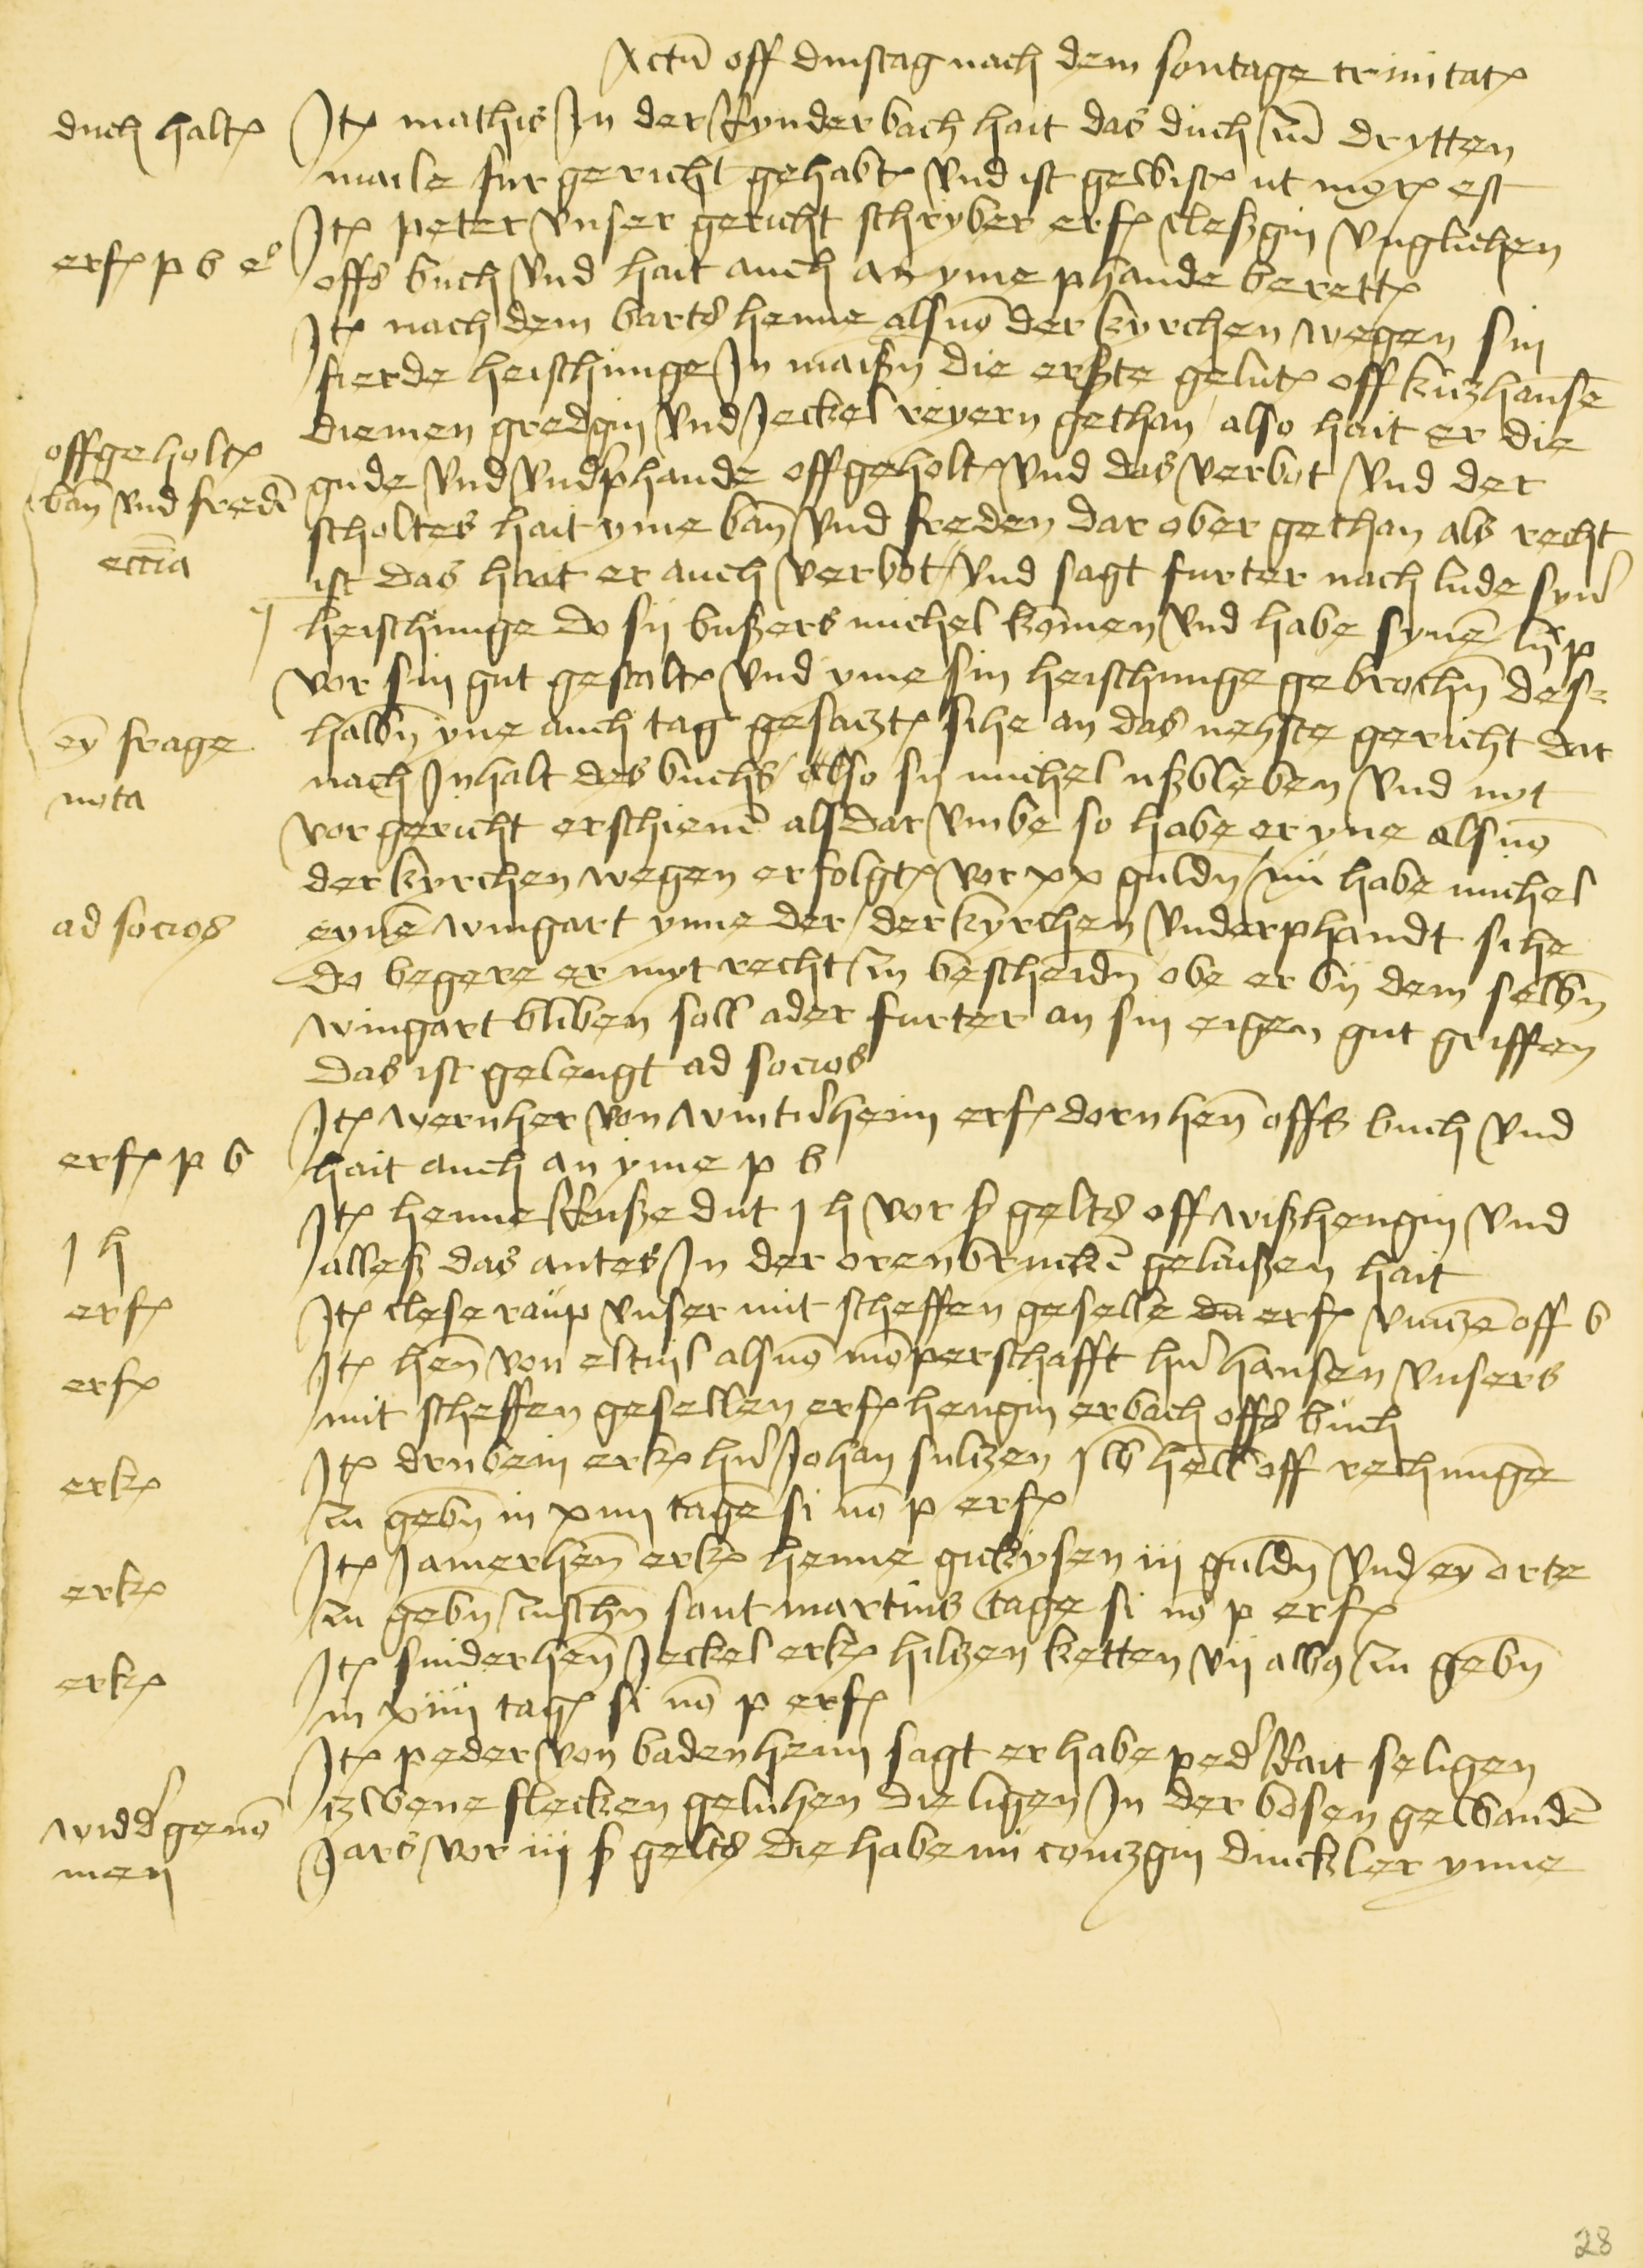 Actu off dinstag nach dem sontage trinitat
duch halt
Jt mathis Jn der Synderbach hait das duch zu drytten
maile fur gericht gehabt vnd ist gewist ut mor est
erf p b
Jt peter vnser gericht schryber erf cleßgin vnglichen
offs buch vnd hait auch an yme phande berett
Jt nach dem barts henne als vo der kyrchen wegen sin
fierde heischunge Jn maißn die erste gelut off kuzhansen
diemen gredgin vnd Jeckel reyern gethan also hait er die
offgeholt
ban vnd freden
eccia
gude vnd vndphande offgeholt vnd das verbot vnd der
scholtes hait yme ban vnd freden dar ober gethan als recht
ist das hait er auch verbot vnd sagt furter nach lude syner
heischunge do sij bußers michel komen vnd habe syme
vor sin gut gestalt vnd yme sin heischunge gebrochn des-
ey frage
nota
halbn yne auch tag gesatzt sihe an das nehste gericht dar
nach Jnhalt des buchs also sij michel ußbleben vnd nyt
vor gericht erschiene als dar vmbe so habe er yne als vo
der kyrchen wegen erfolgt vor xx guldn nu habe michel
ad socios
eyne wingart ynne der der kyrchen vnderphandt sihe
do begere er myt recht zu bescheidn obe er by dem selbn
wingart bliben soll ader furter an sin eigen gut griffen
das ist gelengt ad socios
erf p b
Jt wernher von wintterheim erf dorn hen offs buch vnd
hait auch an yme p b
j h
Jt henne Stuße dut j h vor ß gelts off wißhengin vnd
alleß das antes Jn der orenbrucke gelaißen hait
erf
Jt clese raup vnser mit scheffen geselle du erf off b
erf
Jt hen von eltuil als vo momperschafft her hansen vnsers
mit scheffen gesellen erf hengin erbach offs buch
erk
Jt drubein erk her Johan sultzen off rechnunge
zu gebn in xiiij tage si no p erf
erk
Jt Jamerhen erk henne gickysen iij guldn vnd ey orte
zu gebn zuschn sant martins tage si no p erf
erk
Jt suiderhen Jeckel erk hiltzen ketten vij alb zu gebn
in xiiij tag si no p erf
widder geno
men
Jt peder von badenheim sagt er habe peder seligen
zwene flecken geluhen die ligen Jn der bosen gewanden
Jars vor iij ß gelts die habe nu contzgin dinckler ynne
28